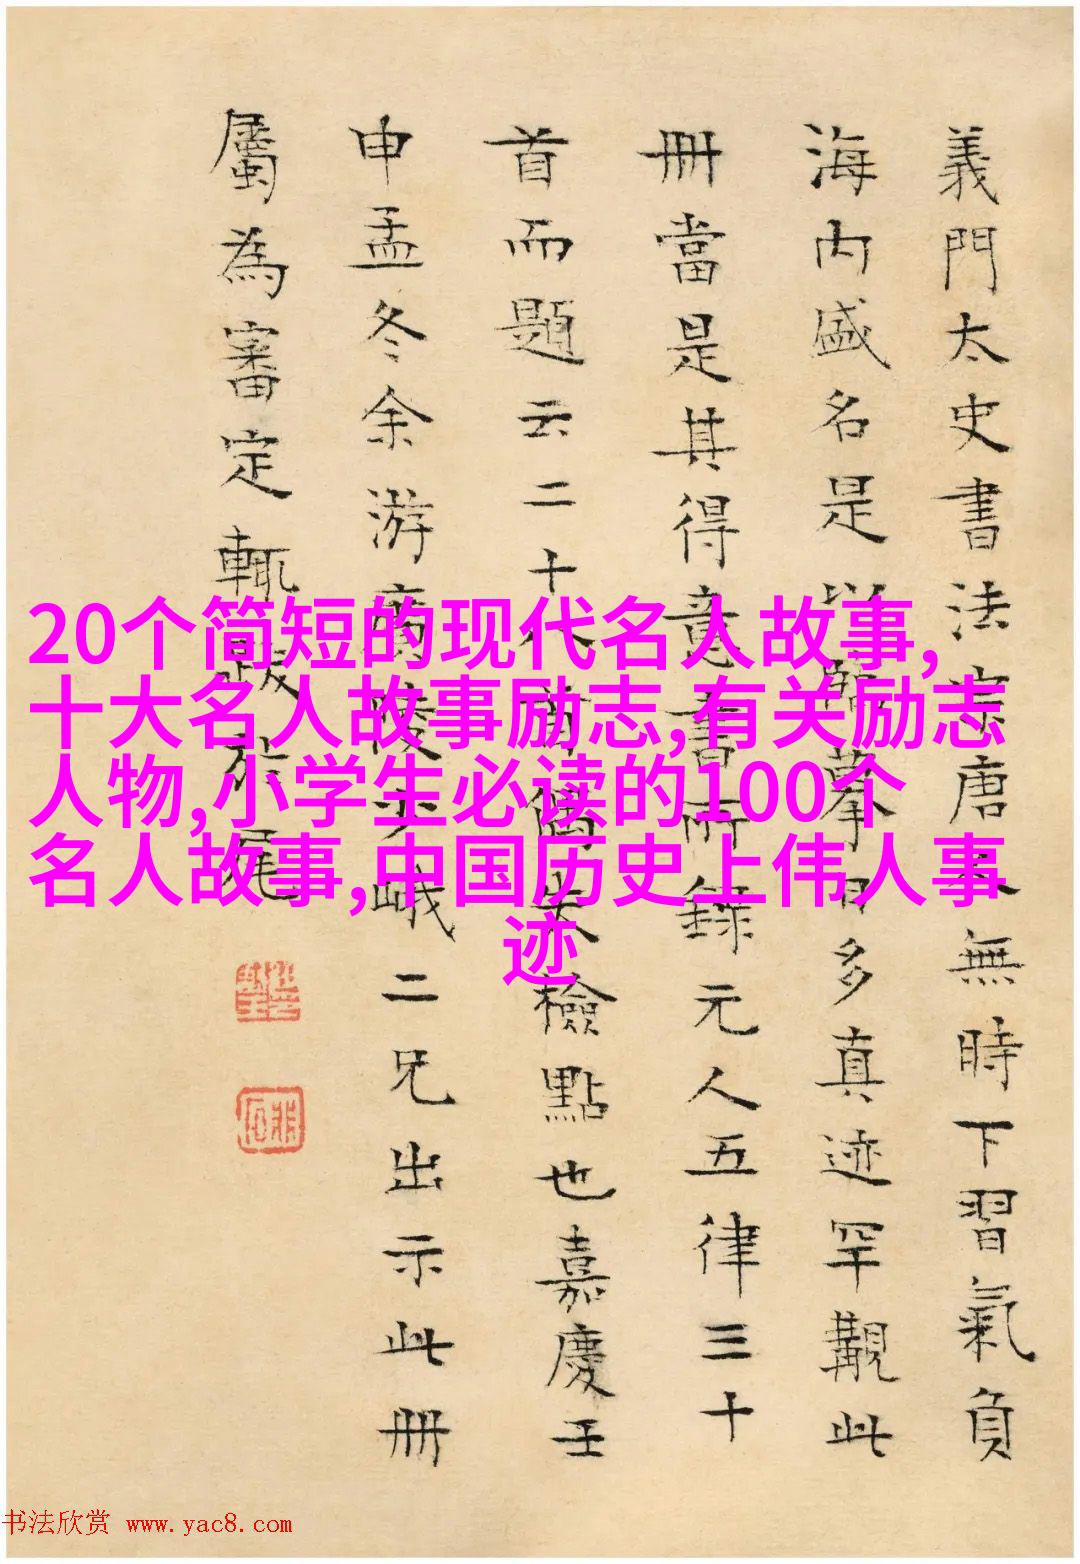 義門太史書法宗唐人無時下習氣負
海内盛名是以臨摹日多真迹罕覯此
冊當是其得意書所錄元人五律三十
首而題云二十八首偶失檢點也嘉慶壬
申孟冬余游廣陵少峨二兄出示此冊
屬為審定輒跋於尾
20个简短的现代名人故事,
十大名人故事励志,有关励志
人物,小学生必读的100个
名人故事,中国历史上伟人事
迹
书法欣赏 www.yac8.com